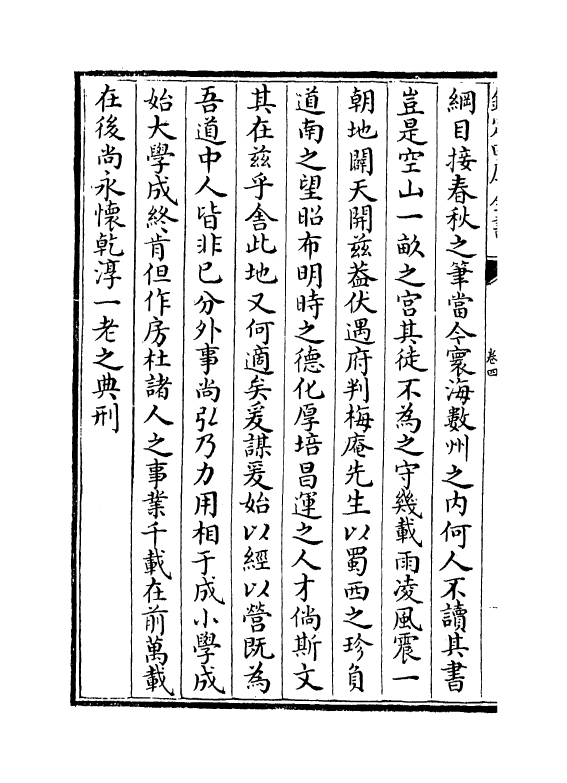 卷四
綱目接春秋之筆當今寰海數州之内何人不讀其書
豈是空山一畝之宮其徒不為之守幾載雨凌風震一
朝地闢天開兹葢伏遇府判梅庵先生以蜀西之珍負
道南之望昭布明時之德化厚培昌運之人才倘斯文
其在兹乎舍此地又何適矣爰謀爰始以經以營既為
吾道中人皆非已分外事尚弘乃力用相于成小學成
始大學成終肯但作房杜諸人之事業千載在前萬載
在後尚永懷乾淳一老之典刑